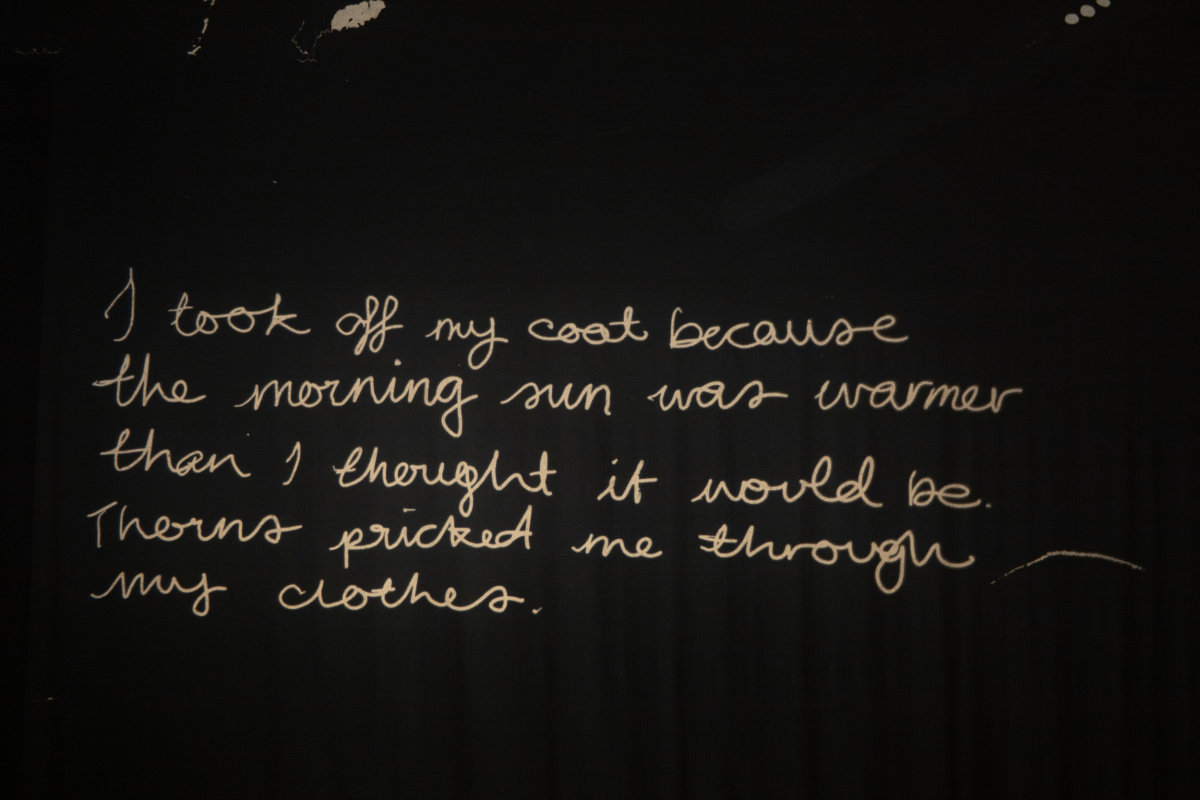 I took off my coat because
the morning sun was warmer
than I thought it would be.
Thorns pricked me through
my clothes.